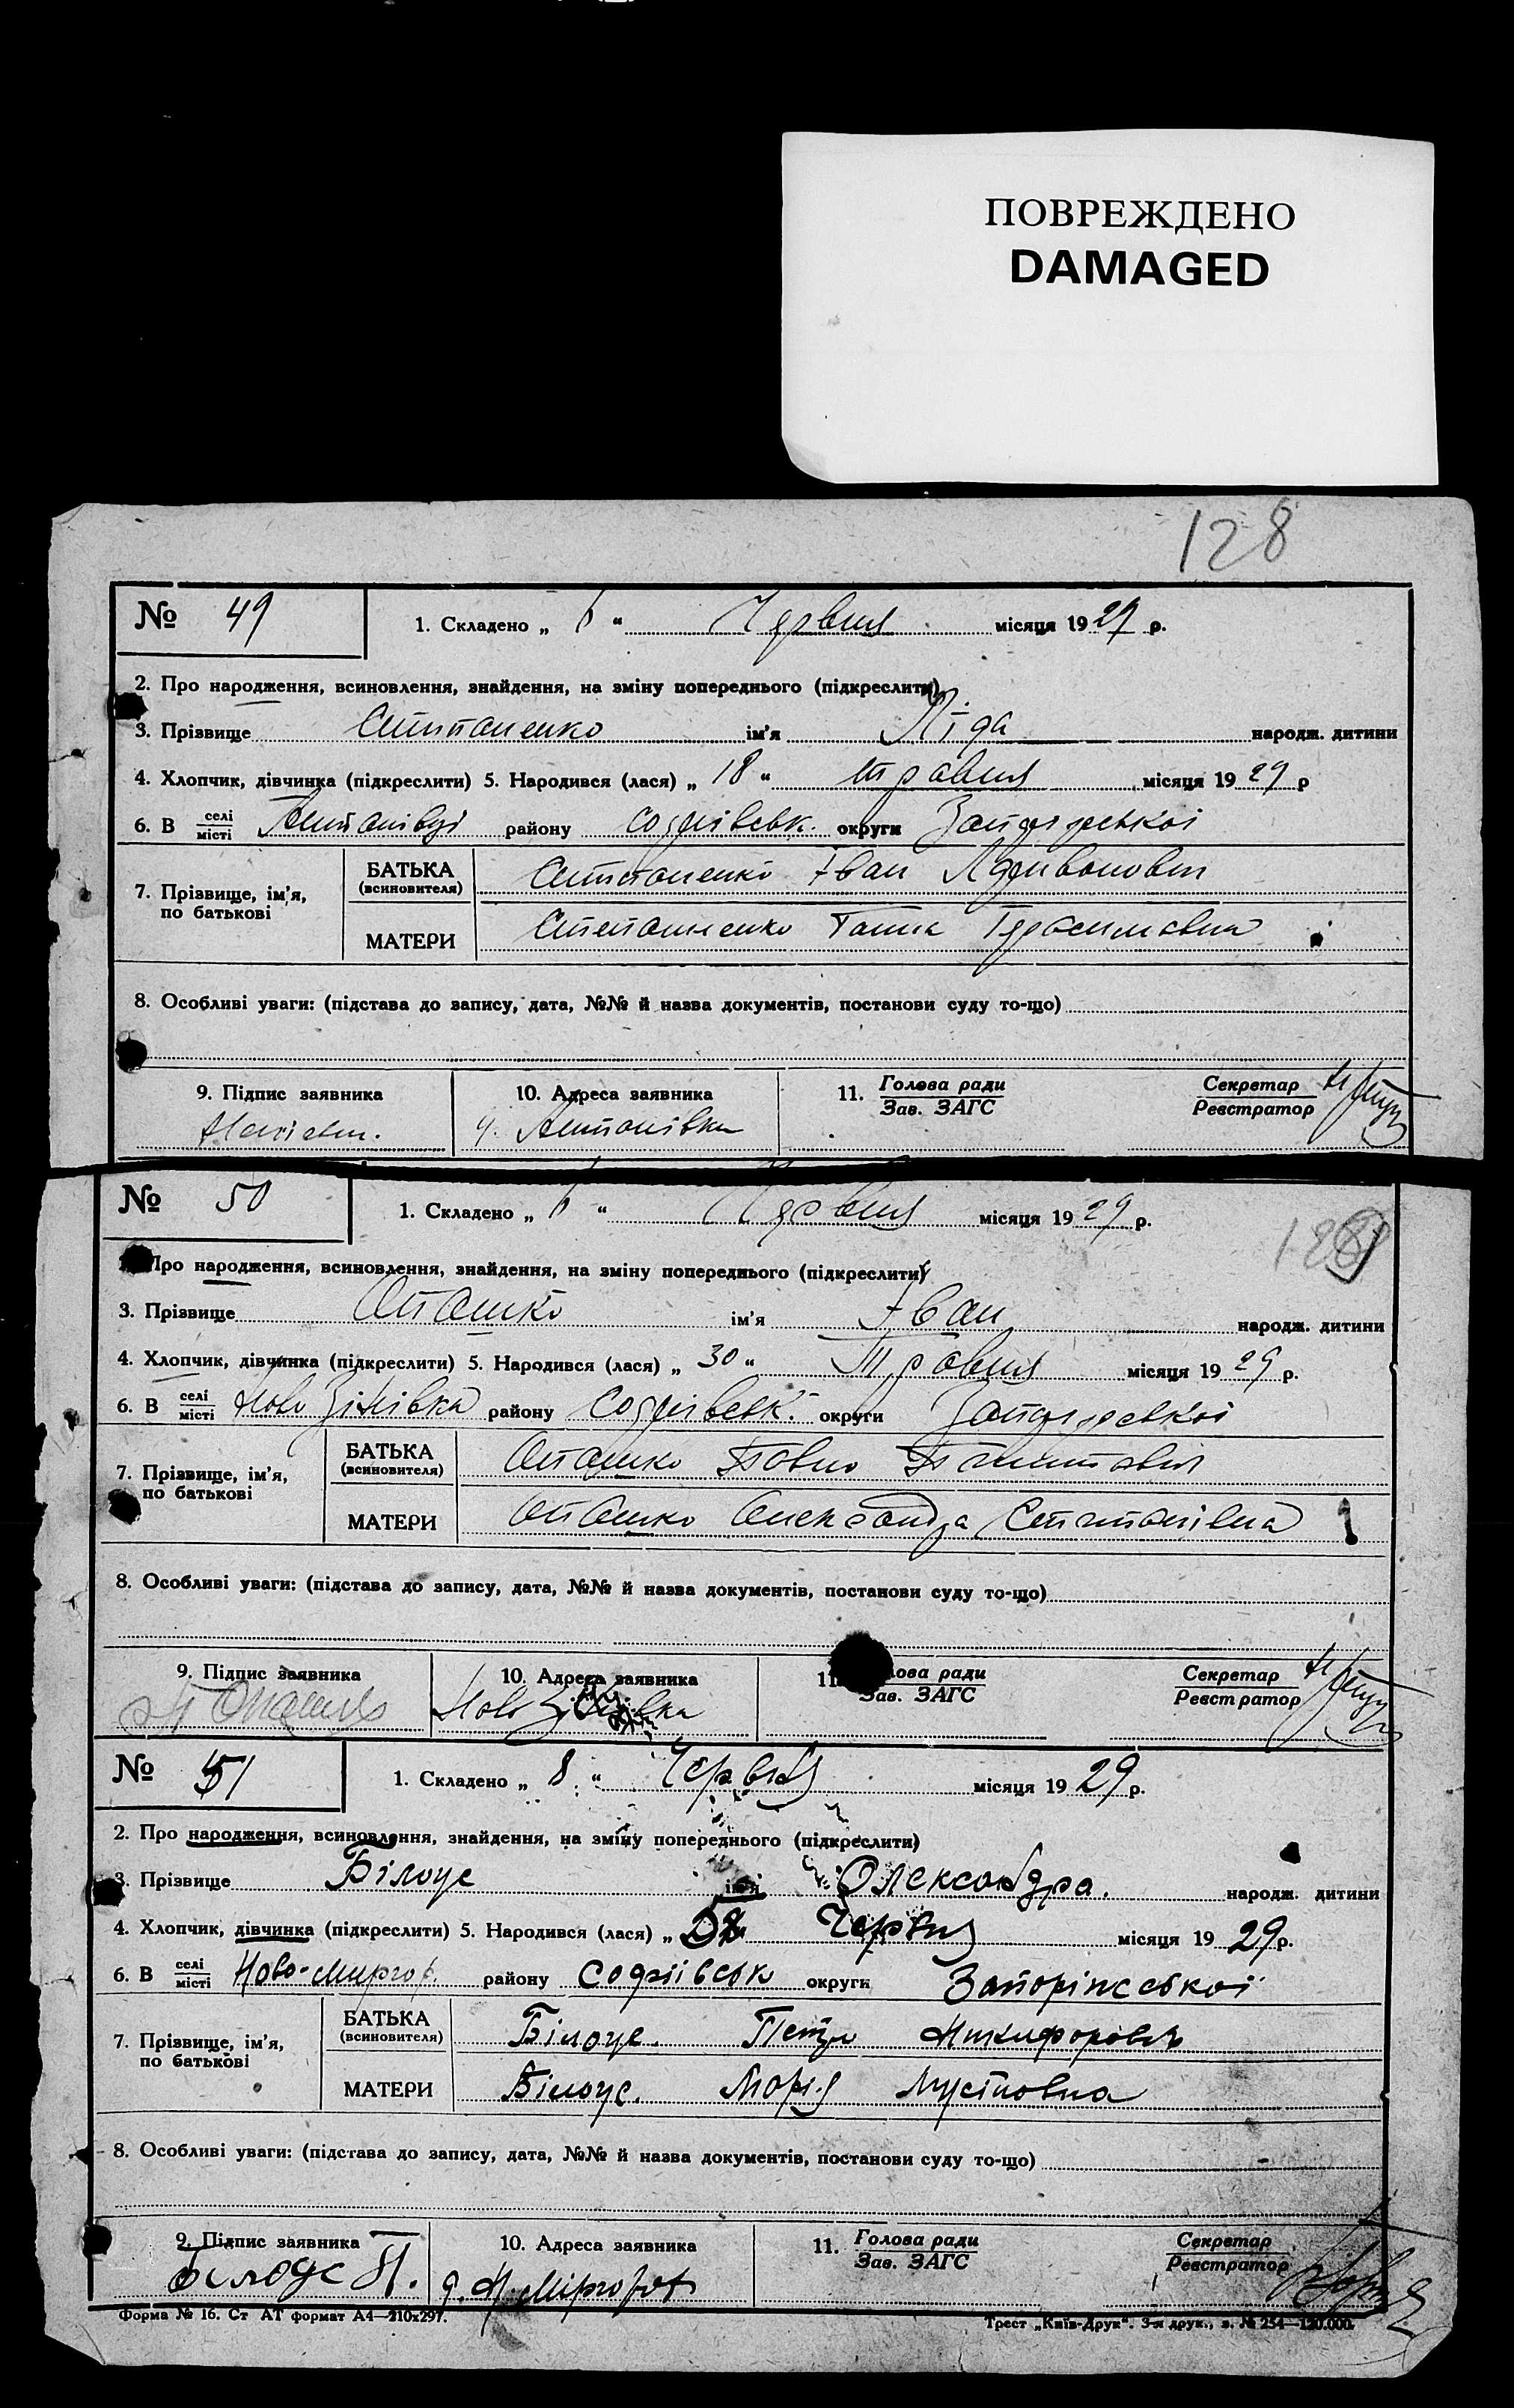 ПОВРЕЖДЕНО
DAMAGED
128
№ 49 1. Складено „ 6 “ Червня місяця 1929 р.
2. Про народження, всиновлення, знайдення, на зміну попереднього (підкреслити)
3. Прізвище Степаненко ім'я Ліда народж. дитини
4. Хлопчик, дівчинка (підкреслити) 5. Народився (лася) „ 18 “ травня місяця 1929 р
6. В селі/місті Антанівці району Софіївськ. округи
7. Прізвище, ім'я, по батькові
БАТЬКА (всиновителя) Степаненко Іван
МАТЕРИ Степаненко Ганна Герасимовна
8. Особливі уваги: (підстава до запису, дата, №№ й назва документів, постанови суду то-що)
9. Підпис заявника 10. Адреса заявника 11. Голова ради / Зав. ЗАГС Секретар / Реєстратор
с. Антанівка
№ 50 1. Складено „ 6 “ Червня місяця 1929 р.
128
Про народження, всиновлення, знайдення, на зміну попереднього (підкреслити)
3. Прізвище Опашко ім'я Іван народж. дитини
4. Хлопчик, дівчинка (підкреслити) 5. Народився (лася) „ 30 “ Травня місяця 1929 р.
6. В селі/місті Ново Зінівка району Софіївськ. округи
7. Прізвище, ім'я, по батькові
БАТЬКА (всиновителя) Опашко Павло
МАТЕРИ Опашко Олександра Степанівна
8. Особливі уваги: (підстава до запису, дата, №№ й назва документів, постанови суду то-що)
9. Підпис заявника 10. Адреса заявника 11. Голова ради / Зав. ЗАГС Секретар / Реєстратор
Ново
№ 51 1. Складено „ 8 “ Червня місяця 1929 р.
2. Про народження, всиновлення, знайдення, на зміну попереднього (підкреслити)
3. Прізвище Білоус ім'я Олександра. народж. дитини
4. Хлопчик, дівчинка (підкреслити) 5. Народився (лася) „ Червня місяця 1929 р.
6. В селі/місті Ново-Миргор. району Софіївськ округи Запоріжської
7. Прізвище, ім'я, по батькові
БАТЬКА (всиновителя) Білоус Петро Никифоровъ
МАТЕРИ Білоус. Марія
8. Особливі уваги: (підстава до запису, дата, №№ й назва документів, постанови суду то-що)
9. Підпис заявника 10. Адреса заявника 11. Голова ради / Зав. ЗАГС Секретар / Реєстратор
Білоус П.
Форма № 16. Ст АТ формат А4—210х297. Трест „Київ-Друк“. 3-я друк., з. № 254—120.000.